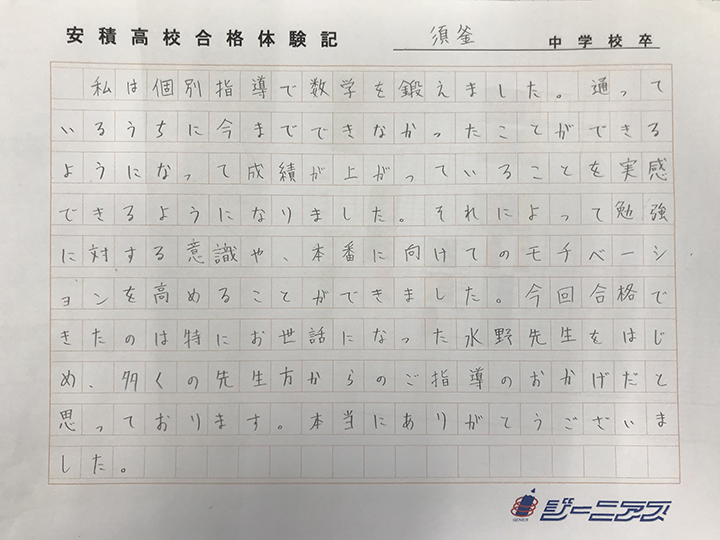 安積高校合格体験記 須釜 中学校卒
私は個別指導で数学を鍛えました。通って
いるうちに今までできなかったことができる
ようになって成績が上がっていることを実感
できるようになりました。それによって勉強
に対する意識や、本番に向けてのモチベーシ
ョンを高めることができました。今回合格で
きたのは特にお世話になった水野先生をはじ
め、多くの先生方からのご指導のおかげだと
思っております。本当にありがとうございま
した。
GENIUS ジーニアス